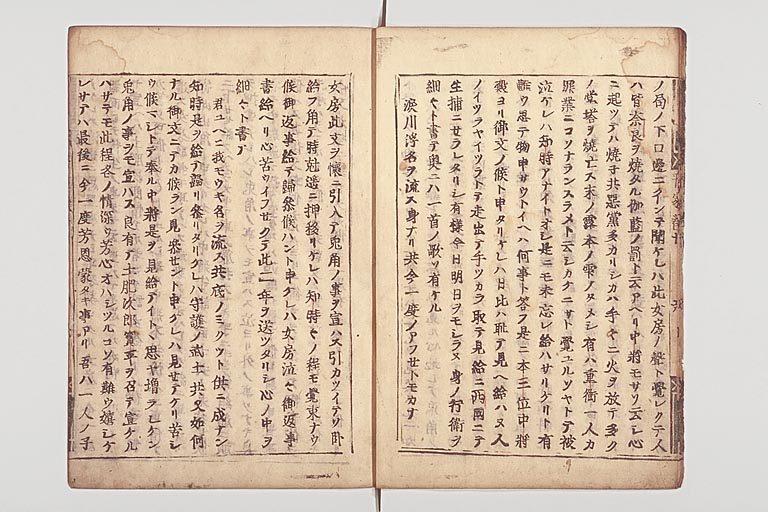 ノ局ノ下口邊ニイシテ聞ケレハ此女房ノ聲ト覺シクテ人
ハ皆奈良ヲ焼タル伽藍ノ罰ト云アヘリ中将モサソ云シ心
ニ起ツテハ焼子共悪黨多カリシカハ手々ニ火ヲ放テ多ク
ノ堂塔ヲ焼亡ス末ノ露本ノ雫ノタメシ有ハ重衡一人カ
罪業ニコソナランスラメト云シカケニサト覺ユルソヤトテ被
泣ケレハ知時アナイトオシ是ニモ未忘レ給ハサリケリト有
難ウ思テ物申サウトイヘハ何事ト答フ是ニ本三位中将
殿ヨリ御文ノ候ト申タリケレハ日比ハ耻テ見ヘ給ハヌ人
ノイツラヤイツラトテ走出テ手ツカラ取テ見給ニ西國ニテ
生捕ニセラレタリシ有様今日明日ヲモシラヌ身ノ行衛ヲ
細々ト書テ奥ニハ一首ノ歌ソ有ケル
涙川浮名ヲ流ス身ナリ共今一度ノアフセトモカナ
女房此文ヲ懐ニ引入テ兎角ノ事ヲ宣ハス引カツイテソ臥
給フ角テ時剋遥ニ押移リケレハ知時心ノ程モ覺束ナウ
候御返事給テ歸参候ハント申ケレハ女房泣々御返事
書給ヘリ心苦ウイフセクテ此二年ヲ送ツタリシ心ノ中ヲ
細々ト書テ
君ユヘニ我モウキ名ヲ流ス共底ノミクツト供ニ成ナン
知時是ヲ給テ歸リ参リタリケレハ守護ノ武士共又如何
ナル御文ニテカ候ラン見参セント申ケレハ見セテケリ苦シ
ウ候マシトテ奉ル中将是ヲ見給アイトヽ思ヤ増ラレケン
兎角ノ事ヲモ宣ハス良有テ土肥次郎實平ヲ召テ宣ケル
ハサテモ此程各ノ情深ウ芳心オハシツルコソ有難ウ嬉シケ
レサテハ最後ニ今一度芳恩蒙タキ事アリ吾ハ一人ノ子